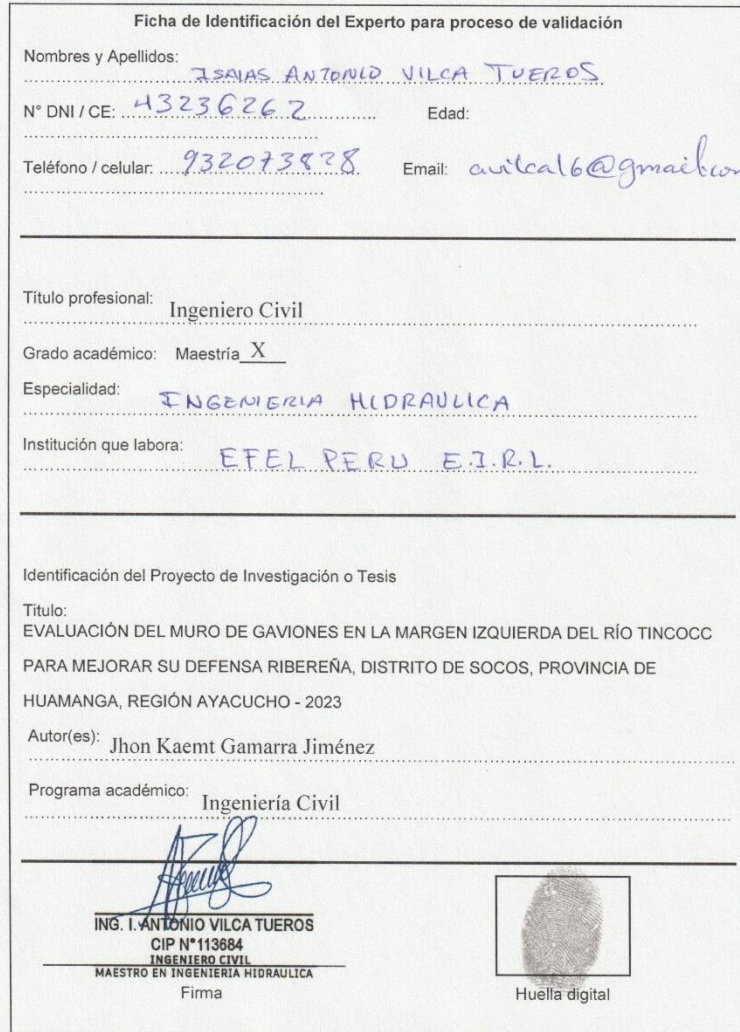 Ficha de Identificación del Experto para proceso de validación
Nombres y Apellidos:
ISAIAS ANTONIO VILCA TUEROS
N° DNI / CE: 43236262 Edad:
Teléfono / celular: 932073828 Email: avilca16@gmail.com
Título profesional: Ingeniero Civil
Grado académico: Maestría X
Especialidad: INGENIERIA HIDRAULICA
Institución que labora: EFEL PERU E.I.R.L.
Identificación del Proyecto de Investigación o Tesis
Titulo:
EVALUACIÓN DEL MURO DE GAVIONES EN LA MARGEN IZQUIERDA DEL RÍO TINCOCC
PARA MEJORAR SU DEFENSA RIBEREÑA, DISTRITO DE SOCOS, PROVINCIA DE
HUAMANGA, REGIÓN AYACUCHO - 2023
Autor(es): Jhon Kaemt Gamarra Jiménez
Programa académico: Ingeniería Civil
ING. I. ANTONIO VILCA TUEROS
CIP N°113684
INGENIERO CIVIL
MAESTRO EN INGENIERIA HIDRAULICA
Firma
Huella digital